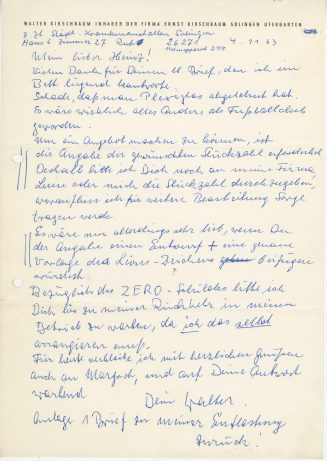 WALTER KIRSCHBAUM INHABER DER FIRMA ERNST KIRSCHBAUM SOLINGEN UFERGARTEN
z. Zt. Städt. Krankenanstalten Solingen
Haus 6 Zimmer 27 Ruf 26271 4. 11. 63
200
Mein lieber Heinz!
Vielen Dank für Deinen lb. Brief, den ich im
Bett liegend beantworte.
Schade, daß man Plexiglas abgelehnt hat.
Es wäre wirklich alles Andere als Fußballclub
geworden.
Um ein Angebot machen zu können, ist
die Angabe der gewünschten Stückzahl erforderlich.
Deshalb bitte ich Dich noch an meine Firma,
oder mich die Stückzahl durchzugeben,
woraufhin ich für weitere Bearbeitung Sorge
tragen werde.
Es wäre mir allerdings sehr lieb, wenn Du
der Angabe einen Entwurf + eine genaue
Vorlage des Zeichens beifügen
würdest.
Bezüglich des ZERO-Schildes bitte ich
Dich bis zu meiner Rückkehr in meinen
Betrieb zu warten, da ich das selbst
arrangieren muß.
Für heute verbleibe ich mit herzlichen Grüßen
auch an Margret, und auf Deine Antwort
wartend
Dein Walter.
Anlage 1 Brief den meiner Entlastung
zurück!